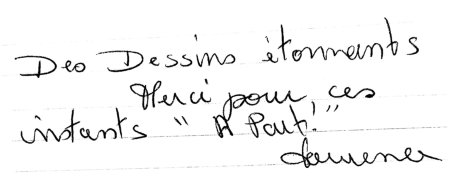 Des Dessins étonnants
Merci pour ces
instants " A Part! "